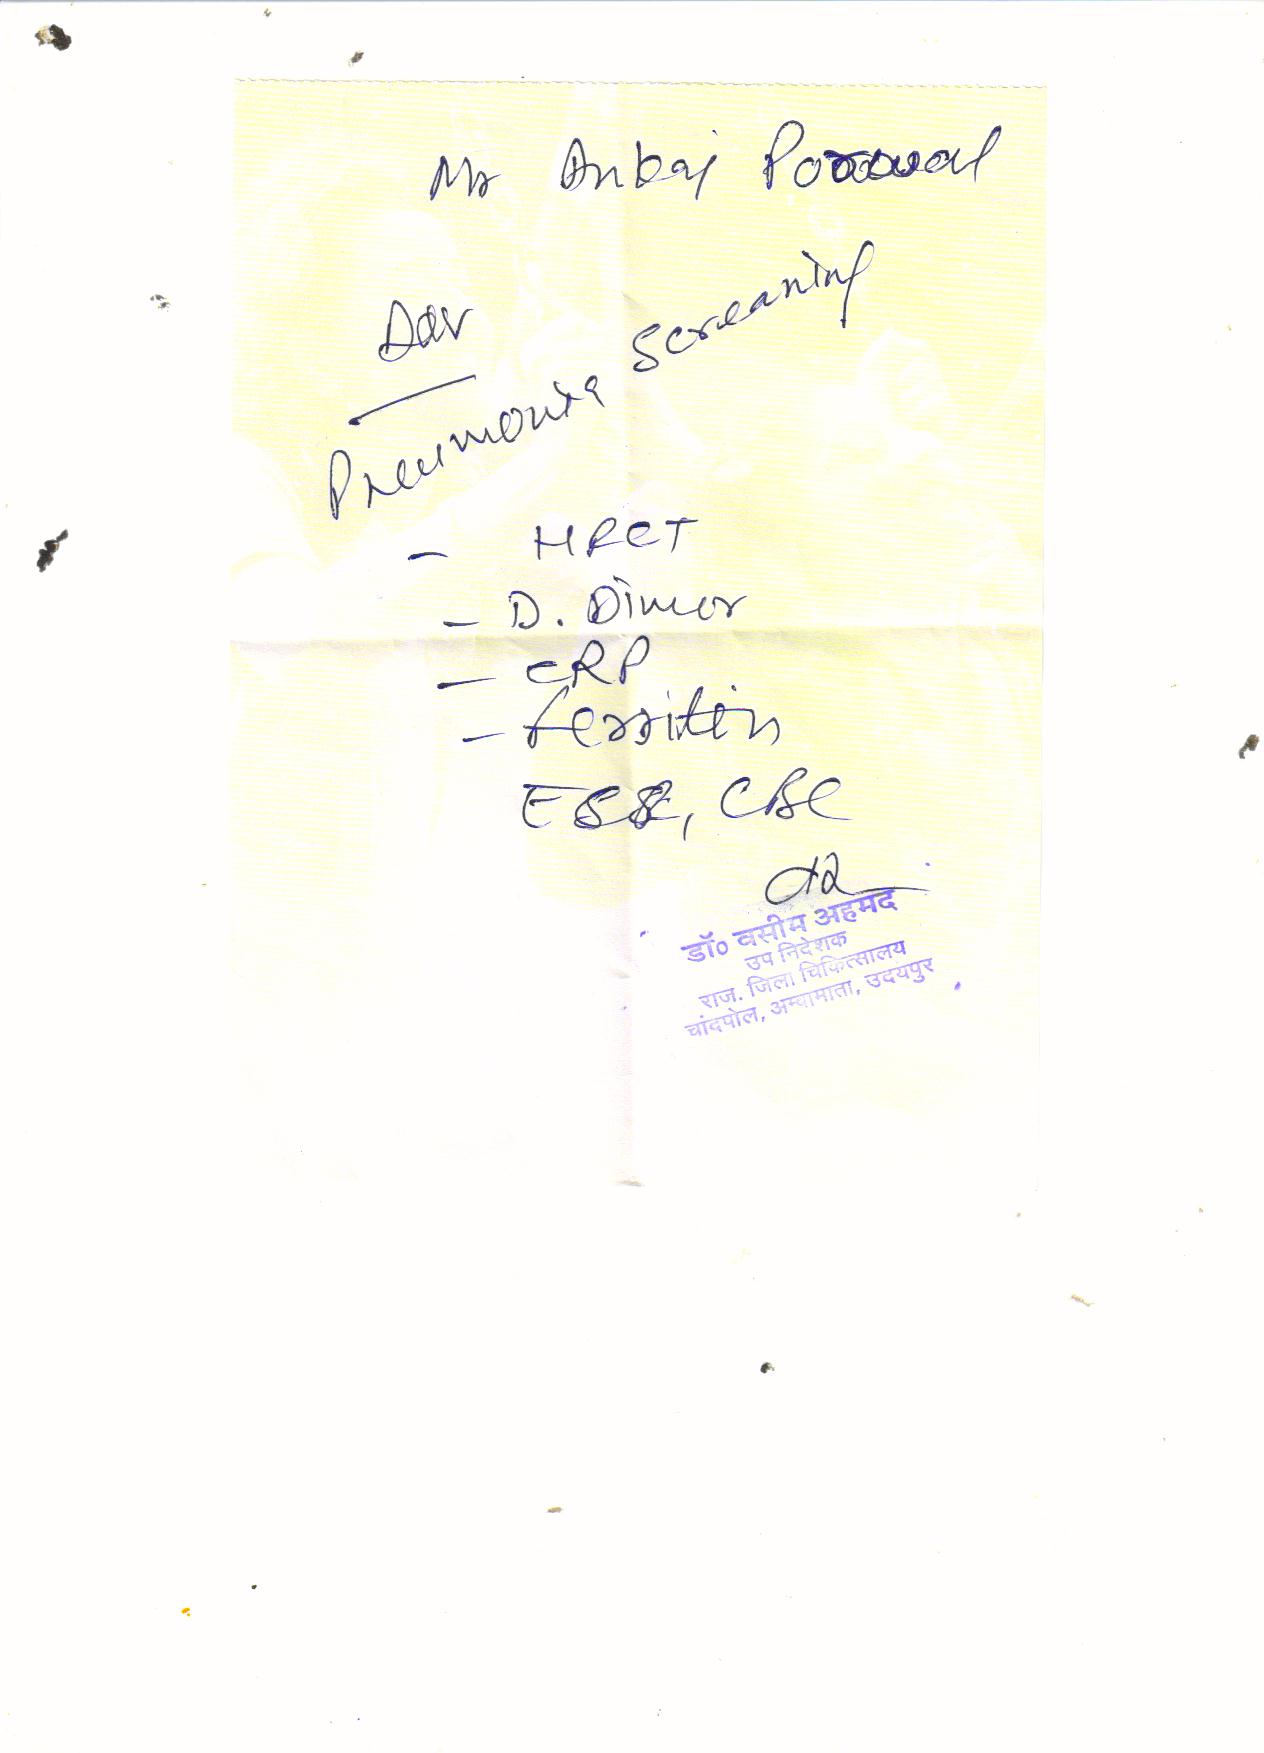 Mr Ankaj Porwal
Adv
Pneumonia Screaning
- HRCT
- D. Dimer
- CRP
- ferritin
ESR, CBC
डॉ० वसीम अहमद
उप निदेशक
राज. जिला चिकित्सालय
चांदपोल, अम्बामाता, उदयपुर